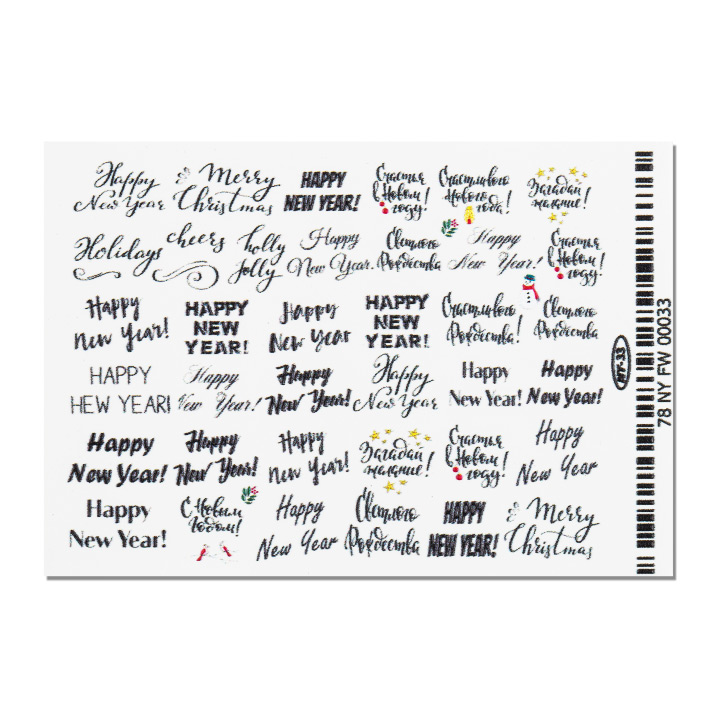 Happy
New Year
Merry
Christmas
HAPPY
NEW YEAR!
Счастья
в Новом
году!
Счастливого
Нового
года!
Загадай
желание!
Holidays
cheers
holly
jolly
Happy
New Year.
Светлого
Рождества
Happy
New Year!
Счастья
в Новом!
году!
Happy
new year!
HAPPY
NEW
YEAR!
Happy
New Year
HAPPY
NEW
YEAR!
Счастливого
Рождества!
Светлого
Рождества
HAPPY
HEW YEAR!
Happy
New Year!
Happy
New Year!
Happy
New Year
Happy
New Year!
Happy
New Year!
Happy
New Year!
Happy
New Year!
Happy
new year!
Загадай
желание!
Счастья
в Новом!
году!
Happy
New Year
Happy
New Year!
С Новым
Годом!
Happy
New Year
Светлого
Рождества
HAPPY
NEW YEAR!
Merry
Christmas
NY-33
78 NY FW 00033